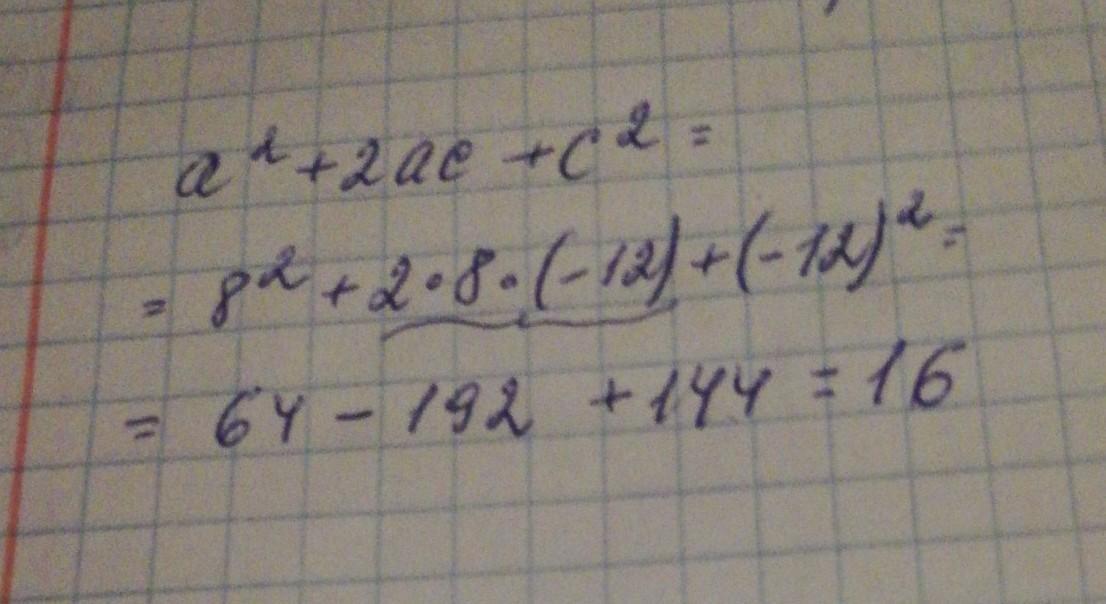 a² + 2ac + c² =
= 8² + 2·8·(-12) + (-12)² =
= 64 - 192 + 144 = 16